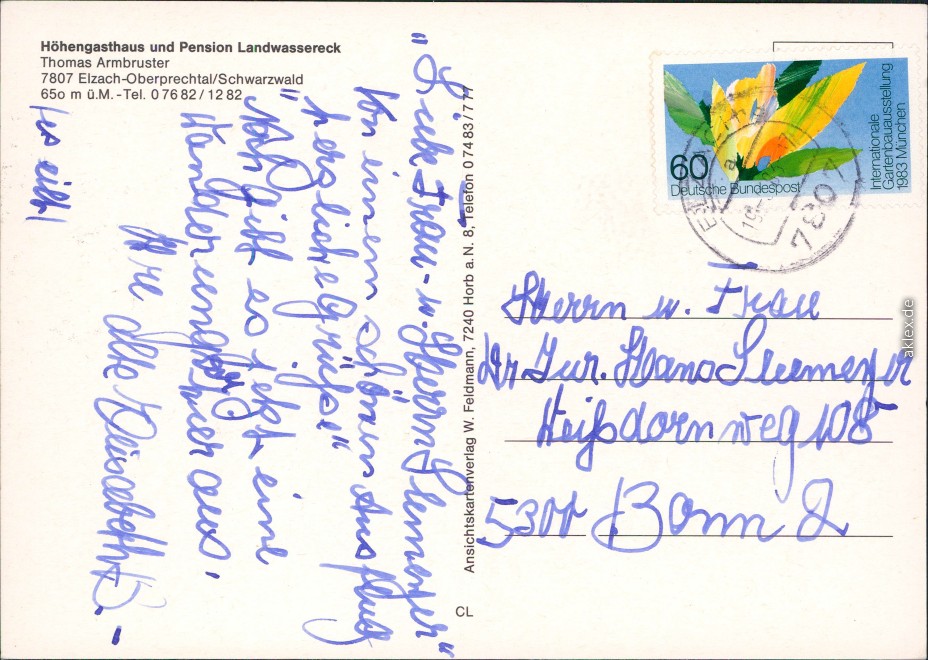 Höhengasthaus und Pension Landwassereck
Thomas Armbruster
7807 Elzach-Oberprechtal/Schwarzwald
65o m ü.M. - Tel. 0 76 82 / 12 82
"Liebe Frau - u. Herrn
Von einem schönen Ausflug
herzliche Grüße"
"Noh gibt es jetzt eine
Wanderung hier aus.
Ihre alte Elisabeth B.-
(es eilt)
Ansichtskartenverlag W. Feldmann, 7240 Horb a. N. 8, Telefon 0 74 83 / 7 77
CL
60
Deutsche Bundespost
Internationale
Gartenbauausstellung
1983 München
7807
Herrn u. Frau
Dr. Jur. Hans
Weißdornweg 108
5300 Bonn 2
aklex.de